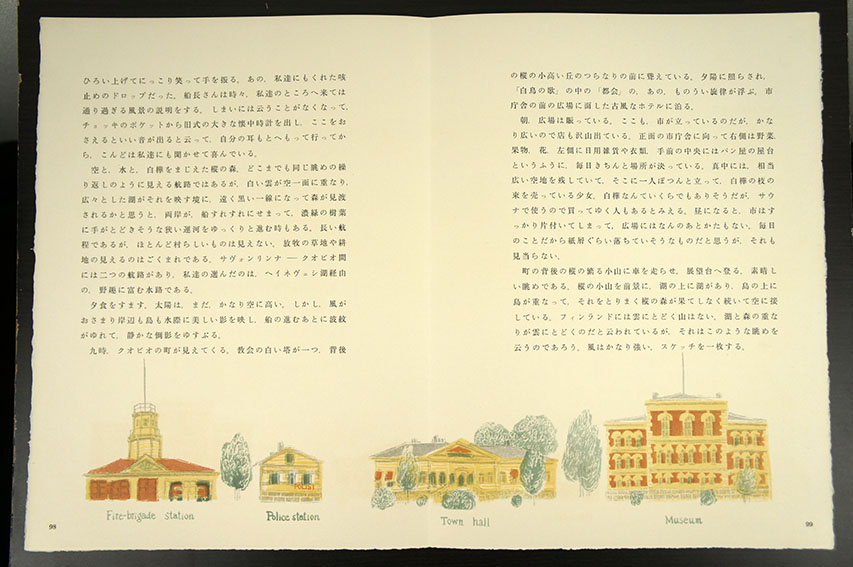 ひろい上げてにっこり笑って手を振る。あの、私達にもくれた咳
止めのドロップだった。船長さんは時々、私達のところへ来ては
通り過ぎる風景の説明をする。しまいには云うことがなくなって、
チョッキのポケットから旧式の大きな懐中時計を出し、ここをお
さえるといい音が出ると云って、自分の耳もとへもって行ってか
ら、こんどは私達にも聞かせて喜んでいる。
空と、水と、白樺をまじえた樅の森。どこまでも同じ眺めの繰
り返しのように見える航路ではあるが、白い雲が空一面に重なり、
広々とした湖がそれを映す境に、遠く黒い一線になって森が見渡
されるかと思うと、両岸が、船すれすれにせまって、濃緑の樹葉
に手がとどきそうな狭い運河をゆっくりと進む時もある。長い航
程であるが、ほとんど村らしいものは見えない。放牧の草地や耕
地の見えるのはごくまれである。サヴォンリンナ ― クオピオ間
には二つの航路があり、私達の選んだのは、ヘイネヴェシ湖経由
の、野趣に富む水路である。
夕食をすます。太陽は、まだ、かなり空に高い。しかし、風が
おさまり岸辺も島も水際に美しい影を映し、船の進むあとに波紋
がゆれて、静かな倒影をゆすぶる。
九時、クオピオの町が見えてくる。教会の白い塔が一つ、背後
の樅の小高い丘のつらなりの前に聳えている。夕陽に照らされ、
「白鳥の歌」の中の「都会」の、あの、ものうい旋律が浮ぶ。市
庁舎の前の広場に面した古風なホテルに泊る。
朝、広場は賑っている。ここも、市が立っているのだが、かな
り広いので店も沢山出ている。正面の市庁舎に向って右側は野菜、
果物、花、左側に日用雑貨や衣類、手前の中央にはパン屋の屋台
というふうに、毎日きちんと場所が決っている。真中には、相当
広い空地を残していて、そこに一人ぽつんと立って、白樺の枝の
束を売っている少女。白樺なんていくらでもありそうだが、サウ
ナで使うので買ってゆく人もあるとみえる。昼になると、市はす
っかり片付いてしまって、広場にはなんのあとかたもない。毎日
のことだから紙屑ぐらい落ちていそうなものだと思うが、それも
見当らない。
町の背後の樅の繁る小山に車を走らせ、展望台へ登る。素晴し
い眺めである。樅の小山を前景に、湖の上に湖があり、島の上に
島が重なって、それをとりまく樅の森が果てしなく続いて空に接
している。フィンランドには雲にとどく山はない。湖と森の重な
りが雲にとどくのだと云われているが、それはこのような眺めを
云うのであろう。風はかなり強い。スケッチを一枚する。
POLIISI
Fire-brigade station
Police station
Town hall
Museum
98
99